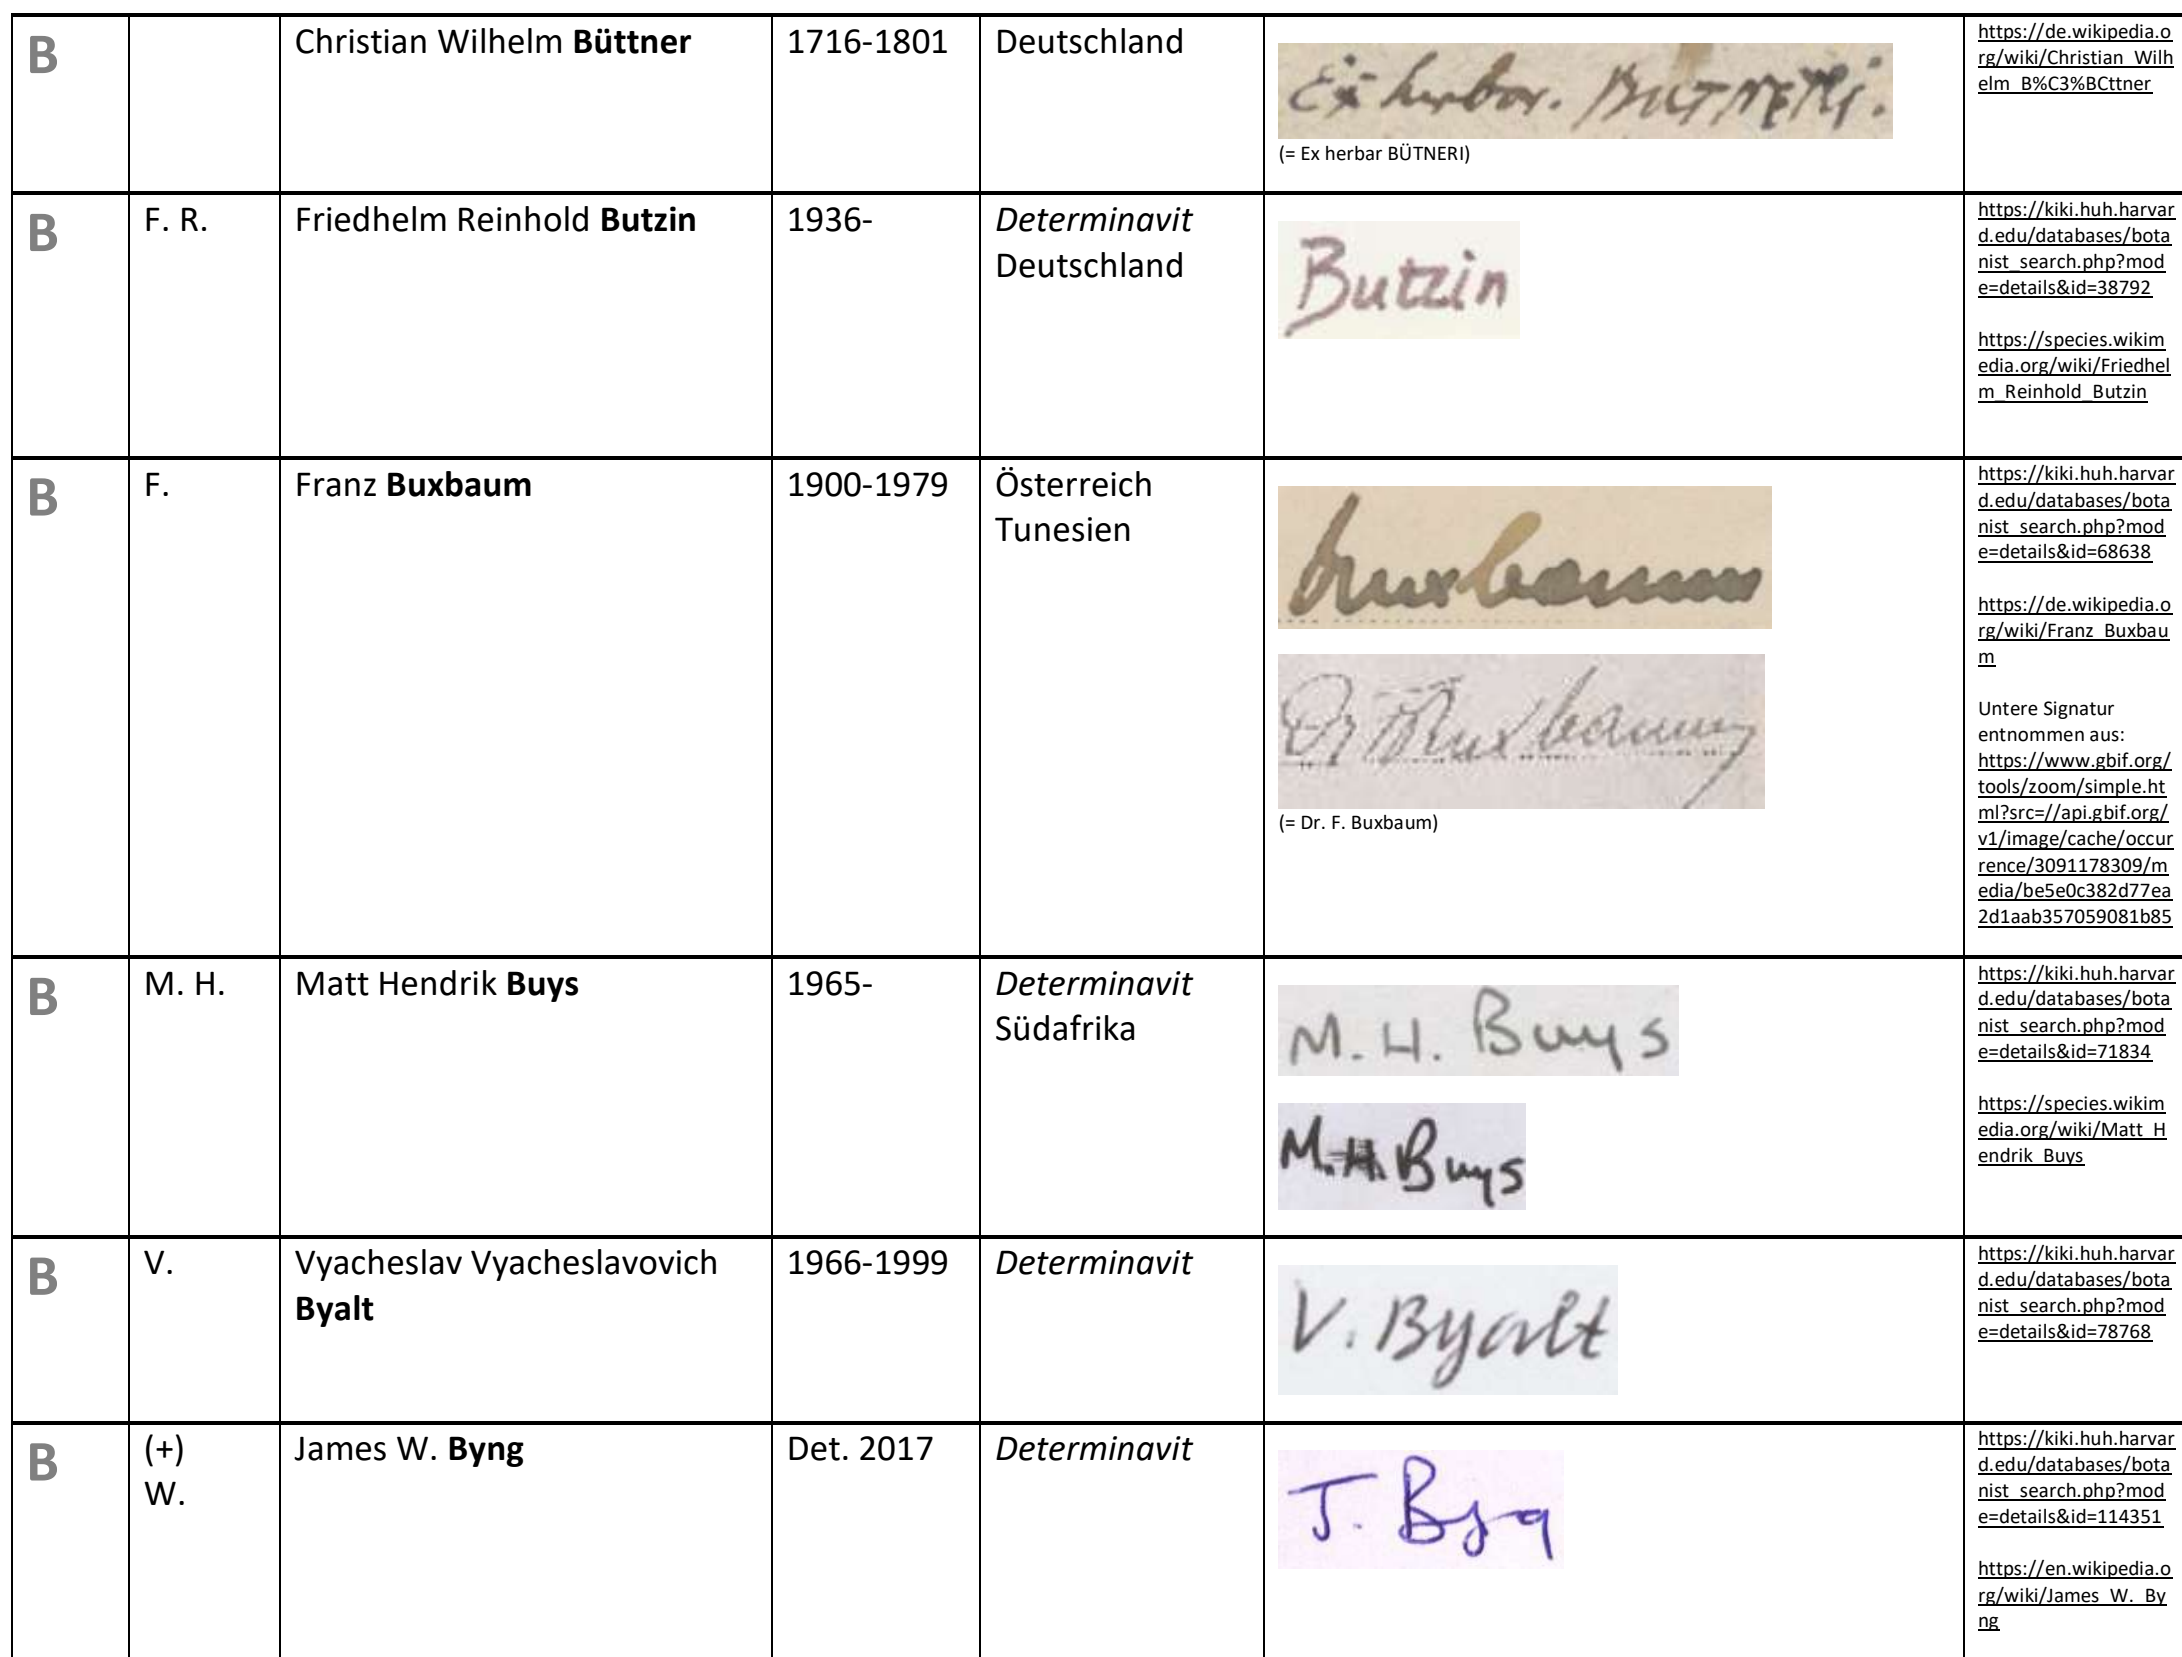 B
Christian Wilhelm Büttner
1716-1801
Deutschland
Ex herbar. BÜTNERI.
(= Ex herbar BÜTNERI)
https://de.wikipedia.o
rg/wiki/Christian_Wilh
elm_B%C3%BCttner
B
F. R.
Friedhelm Reinhold Butzin
1936-
Determinavit
Deutschland
Butzin
https://kiki.huh.harvar
d.edu/databases/bota
nist_search.php?mod
e=details&id=38792
https://species.wikim
edia.org/wiki/Friedhel
m_Reinhold_Butzin
B
F.
Franz Buxbaum
1900-1979
Österreich
Tunesien
Buxbaum
Dr F Buxbaum
(= Dr. F. Buxbaum)
https://kiki.huh.harvar
d.edu/databases/bota
nist_search.php?mod
e=details&id=68638
https://de.wikipedia.o
rg/wiki/Franz_Buxbau
m
Untere Signatur
entnommen aus:
https://www.gbif.org/
tools/zoom/simple.ht
ml?src=//api.gbif.org/
v1/image/cache/occur
rence/3091178309/m
edia/be5e0c382d77ea
2d1aab357059081b85
B
M. H.
Matt Hendrik Buys
1965-
Determinavit
Südafrika
M. H. Buys
M.H. Buys
https://kiki.huh.harvar
d.edu/databases/bota
nist_search.php?mod
e=details&id=71834
https://species.wikim
edia.org/wiki/Matt_H
endrik_Buys
B
V.
Vyacheslav Vyacheslavovich
Byalt
1966-1999
Determinavit
V. Byalt
https://kiki.huh.harvar
d.edu/databases/bota
nist_search.php?mod
e=details&id=78768
B
(+)
W.
James W. Byng
Det. 2017
Determinavit
J. Byng
https://kiki.huh.harvar
d.edu/databases/bota
nist_search.php?mod
e=details&id=114351
https://en.wikipedia.o
rg/wiki/James_W._By
ng